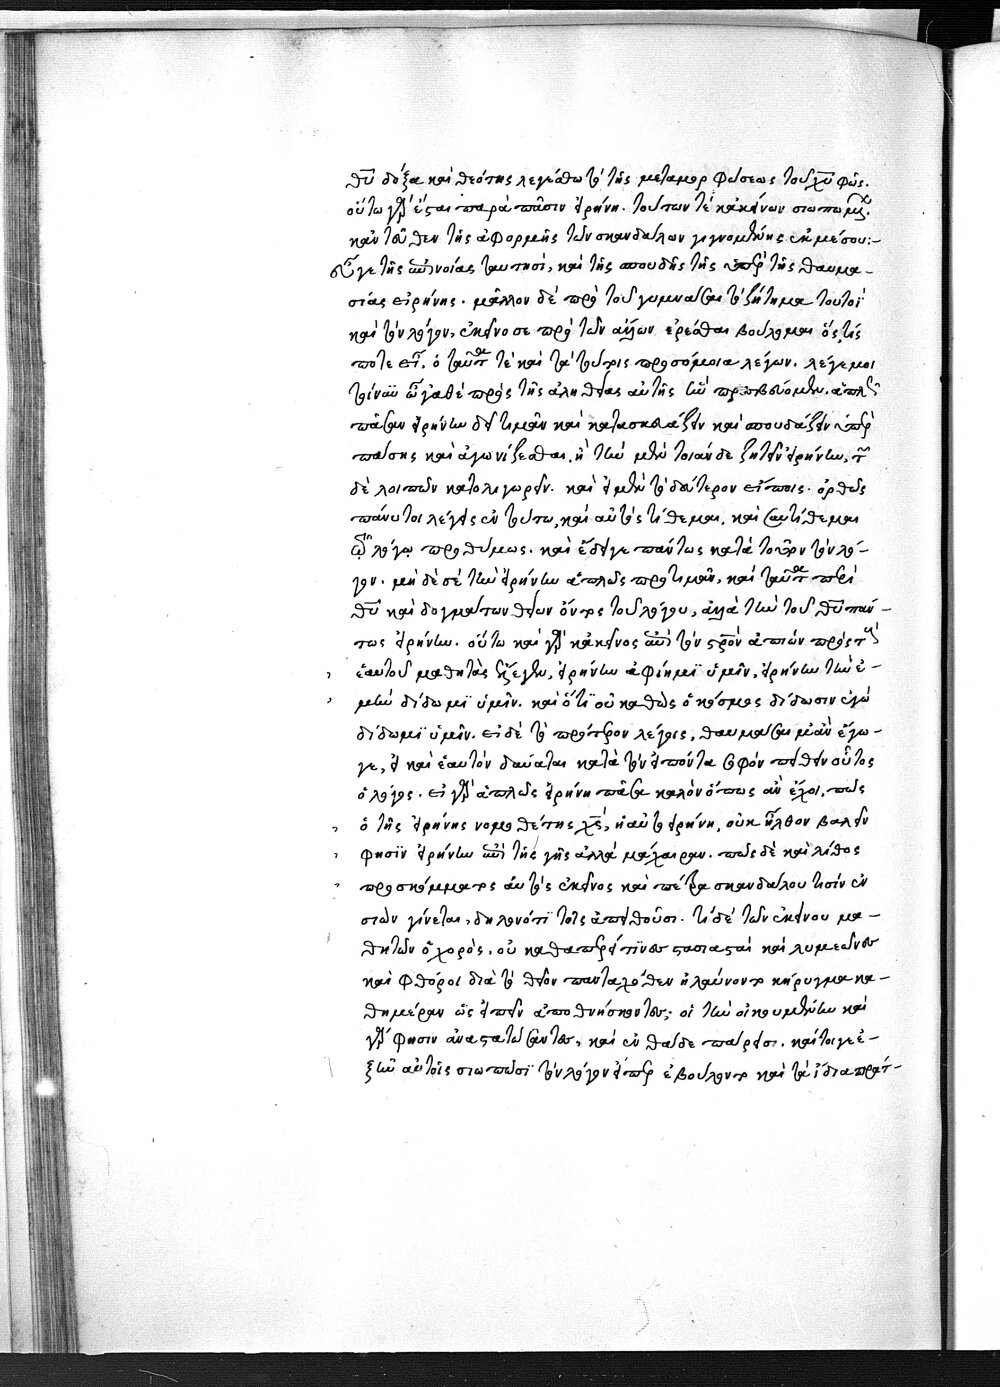 θῡ δόξα καὶ θεότης λεγέσθω τὸ τῆς μεταμορφώσεως τοῦ χῡ φῶς.
οὕτω γὰρ ἔσται παρὰ πᾶσιν εἰρήνη. τούτων τὲ κἀκείνων σιωπωμένων.
κἀντεῦθεν τῆς ἀφορμῆς τῶν σκανδάλων γιγνομένης ἐκ μέσου:-
εὖγε τῆς ἐπινοίας ταυτησὶ, καὶ τῆς σπουδῆς τῆς ὑπὲρ τῆς θαυμα-
σίας εἰρήνης. μᾶλλον δὲ πρὸ τοῦ γυμνάσαι τὸ ζήτημα τουτοῒ
καὶ τὸν λόγον, ἐκεῖνο σε πρὸ τῶν ἄλλων ἐρέσθαι βούλομαι ὅστίς
ποτε εἶ. ὁ ταῦτα τὲ καὶ τὰ τούτοις προσόμοια λέγων. λέγε μοι
τοίνυν ὦγαθὲ πρὸς τῆς ἀληθείας αὐτῆς ἣν πρεσβεύομεν. ἁπλῶς
πᾶσαν εἰρήνην δεῖ τιμᾶν καὶ κατασκευάζειν καὶ σπουδάζειν ὑπὲρ
πάσης καὶ ἀγωνίζεσθαι, ἢ τὴν μὲν τοιάνδε ζητεῖν εἰρήνην, τῆς
δὲ λοιπῶν κατολιγωρεῖν. καὶ εἰ μὲν τὸ δεύτερον εἴποις. ὀρθῶς
πάνυ τοι λέγεις ἐν τούτω, καὶ αὐτὸς τίθεμαι, καὶ συντίθεμαι
τῶ λόγω προθύμως. καὶ ἔδει γε πάντως κατὰ τοῦτον τὸν λό-
γον. μὴ δὲ σὲ τὴν εἰρήνην ἁπλῶς προτιμᾶν, καὶ ταῦτα περὶ
θῡ καὶ δογμάτων θείων ὄντος τοῦ λόγου, ἀλλὰ τὴν τοῦ θῡ πάν-
τως εἰρήνην. οὕτω καὶ γὰρ κἀκεῖνος ἐπὶ τὸν σρ̅ον ἀπιὼν πρὸς τοὺς
ἑαυτοῦ μαθητὰς ἔλεγεν, εἰρήνην ἀφίημϊ ὑμῖν, εἰρήνην τὴν ἐ-
μὴν δίδωμϊ ὑμῖν. καὶ ὅτϊ οὐ καθὼς ὁ κόσμος δίδωσιν ἐγὼ
δίδωμϊ ὑμῖν. εἰ δὲ τὸ πρότερον λέγοις, θαυμάσαιμ' ἂν ἔγω-
γε, εἰ καὶ ἑαυτὸν δύναται κατὰ τὸν εἰπόντα σοφὸν πείθειν οὗτος
ὁ λόγος. εἰ γὰρ ἁπλῶς εἰρήνη πᾶσα καλὸν ὅπως ἂν ἔχοι, πῶς
ὁ τῆς εἰρήνης νομοθέτης χς̅, ἡ αὐτοειρήνη, οὐκ ἦλθον βαλεῖν
φησῒν εἰρήνην ἐπὶ τῆς γῆς ἀλλὰ μάχαιραν. πῶς δὲ καὶ λίθος
προσκόμματος αὐτὸς ἐκεῖνος καὶ πέτρα σκανδάλου τισὶν ἐν
σιὼν γίνεται, δηλονότϊ τοῖς ἀπειθοῦσι. τί δὲ τῶν ἐκείνου μα-
θητῶν ὁ χορὸς. οὐ καθαπερεί τϊνες στασιασταὶ καὶ λυμεῶνες
καὶ φθόροι διὰ τὸ θεῖον πανταχόθεν ἠλαύνοντο κήρυγμα κα-
θημέραν ὡς εἰπεῖν ἀποθνήσκοντες; οἱ τὴν οἰκουμένην καὶ
γὰρ φησιν ἀναστατώσαντες, καὶ ἐνθάδε πάρεισι. καίτοιγε ἐ-
ξῆν αὐτοῖς σιωπῶσϊ τὸν λόγον εἴπερ ἐβούλοντο καὶ τὰ ἴδια πράτ-